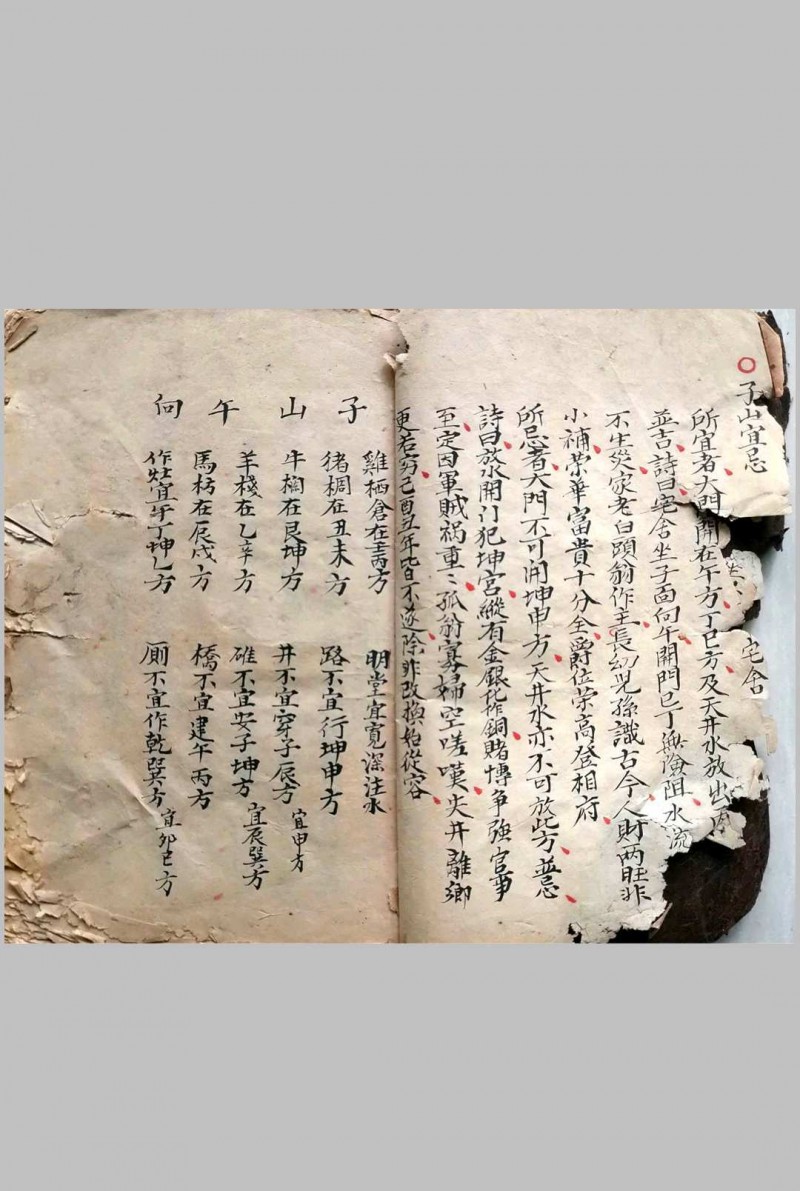 子山宜忌
所宜者大門開在午方丁巳方及天井水放出丙
並吉詩曰宅舍坐子面向午開門巳丁無險阻水流
不生災家老白頭翁作主長幼児孫識古今人財两旺非
小補榮華富貴十分全爵位荣高登相府
所忌者大門不可開坤申方天井水亦不可放此方並忌
詩曰放水開门犯坤宮縱有金銀化作銅賭博争強官事
至定因軍賊祸重〻孤翁寡婦空嗟嘆失井離鄉
更若窮己酉丑年皆不遂除非改換始從容
宅舍
子山午向
雞栖倉在壬丙方
猪椆在丑未方
牛椆在艮坤方
羊棧在乙辛方
馬枋在辰戌方
作灶宜午丁坤乙方
明堂宜寬深注水
路不宜行坤申方
井不宜穿子辰方 宜申方
碓不宜安子坤方 宜辰巽方
橋不宜建午丙方
厠不宜作乾巽方 宜卯巳方